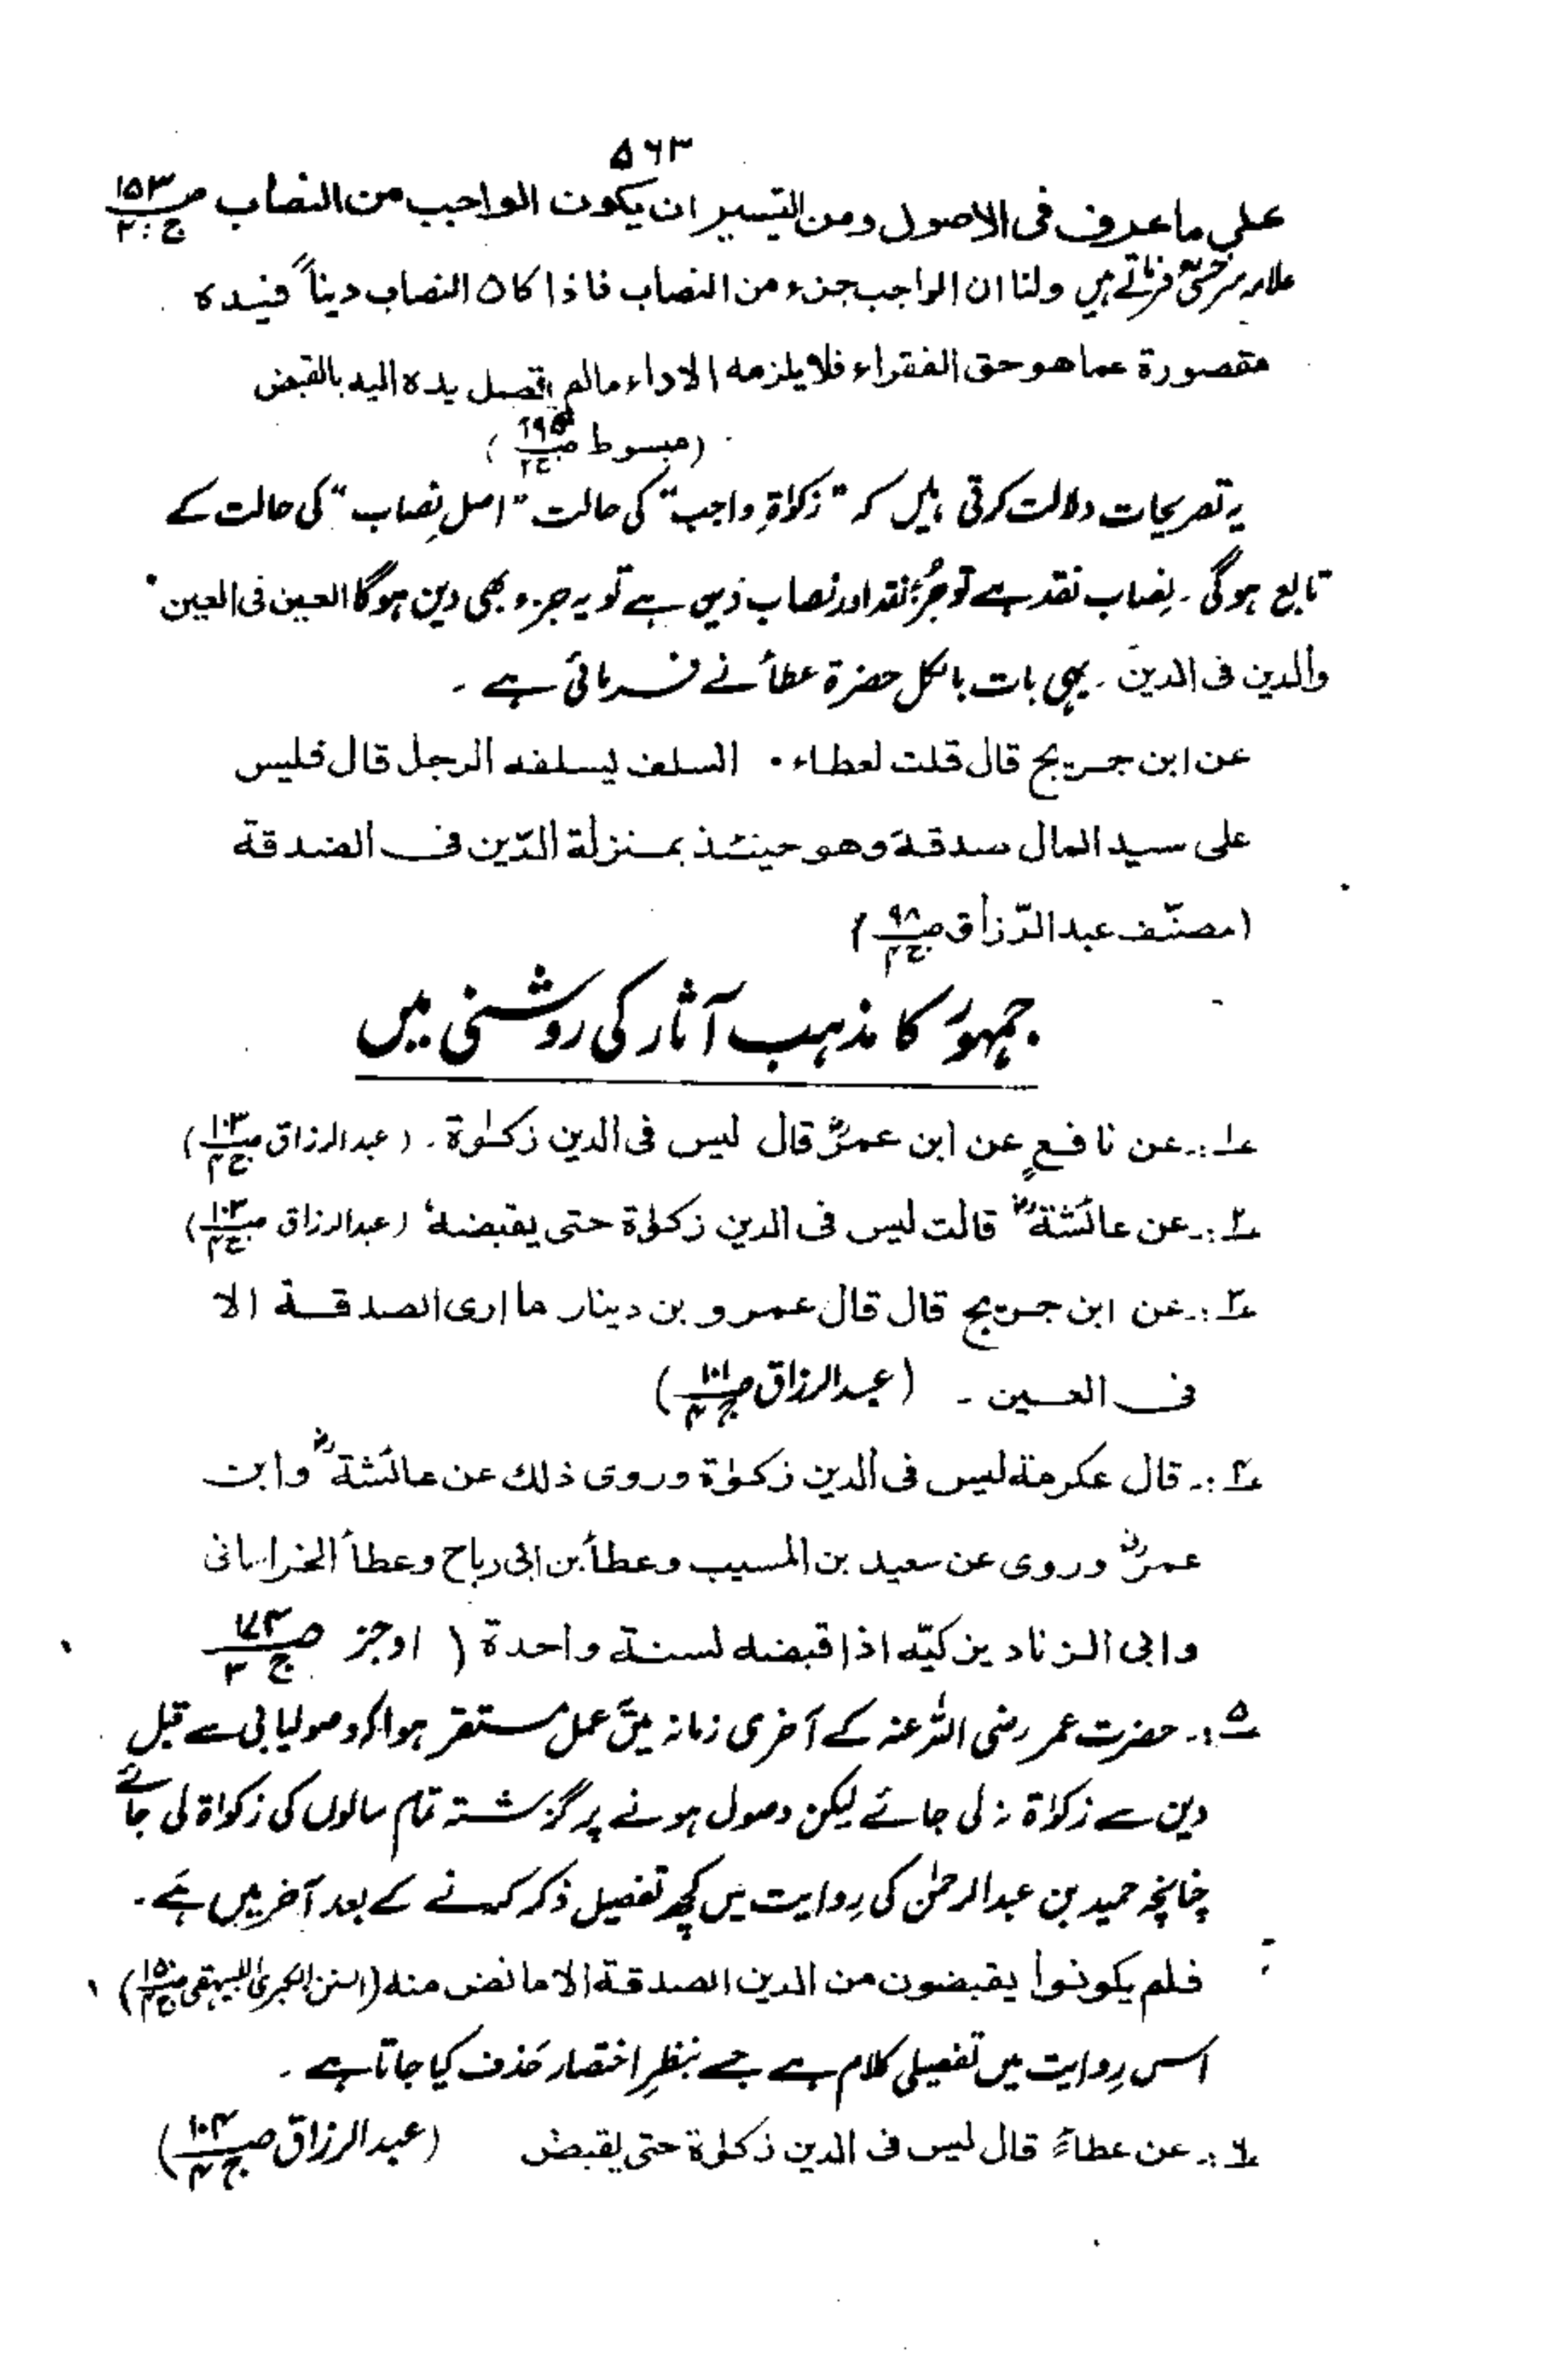 ۵۶۳
علی ما عرف فی الاصول ومن التیسیر ان یکون الواجب من النصاب ص۱۵۳ ج:۲
علامہ سرخسیؒ فرماتے ہیں ولنا ان الواجب جزء من النصاب فاذا کان النصاب دیناً فیدہ
مقصورة عما هو حق الفقراء فلا یلزمه الاداء مالم تصل یدہ الیه بالقبض
(مبسوط ص۱۹۵ ج۲)
یہ تصریحات دلالت کرتی ہیں کہ "زکوٰۃِ واجب" کی حالت "اصلِ نصاب" کی حالت کے
تابع ہوگی۔ نِصاب نقد ہے تو جُزء نقد اور نصاب دَین ہے تو یہ جزء بھی دین ہوگا العین فی العین
والدین فی الدین۔ یہی بات بالکل حضرۃ عطاءؒ نے فرمائی ہے۔
عن ابن جریج قال قلت لعطاء۰ السلف یسلفه الرجل قال فلیس
علی سید المال صدقة وهو حینئذ بمنزلة الدّین فی الصدقة
(مصنّف عبد الرّزاق ص۹۸ ج۴)
جمہورؒ کا مذہب آثار کی روشنی میں
۱؎:۔ عن نافعٍ عن ابن عمرؓ قال لیس فی الدین زکوٰة۔ (عبدالرزاق ص۱۰۳ ج۴)
۲؎:۔ عن عائشةؓ قالت لیس فی الدین زکوٰة حتی یقبضهٗ (عبدالرزاق ص۱۰۳ ج۴)
۳؎:۔ عن ابن جریج قال قال عمرو بن دینار ما اری الصدقة الا
فی العین ۔ (عبدالرزاق ص۱۰۱ ج۴)
۴؎:۔ قال عکرمة لیس فی الدین زکوٰة وروی ذلك عن عائشةؓ وابن
عمرؓ وروی عن سعید بن المسیب وعطاء بن ابی رباح وعطاء الخراسانی
وابی الزناد یزکیّه اذا قبضه لسنة واحدة (اوجز ص۱۷۳ ج۳
۵؎:۔ حضرت عمر رضی اللہ عنہ کے آخری زمانہ میں عمل مستقر ہوا کہ وصولیابی سے قبل
دین سے زکوٰۃ نہ لی جائے لیکن وصول ہونے پر گزشتہ تمام سالوں کی زکواۃ لی جائے
چنانچہ حمید بن عبدالرحمٰن کی رِوایت میں کچھ تفصیل ذکر کرنے کے بعد آخر میں ہَے۔
فلم یکونوا یقبضون من الدین الصدقة الا ما نض منه (السنن الکبریٰ للبیہقی ص۱۵۰ ج۴)
اس رِوایت میں تفصیلی کلام ہے جسے بنظرِ اختصار حَذف کیا جاتا ہے۔
۶؎:۔ عن عطاءؒ قال لیس فی الدین زکوٰة حتی یقبض (عبدالرزاق ص۱۰۴ ج۴)